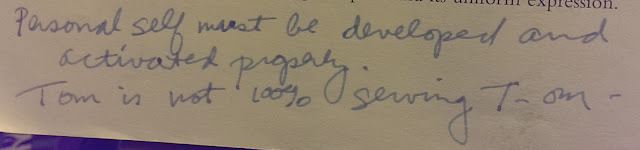 its uniform expression.
Personal self must be developed and
activated properly.
Tom is not 100% serving T-om-